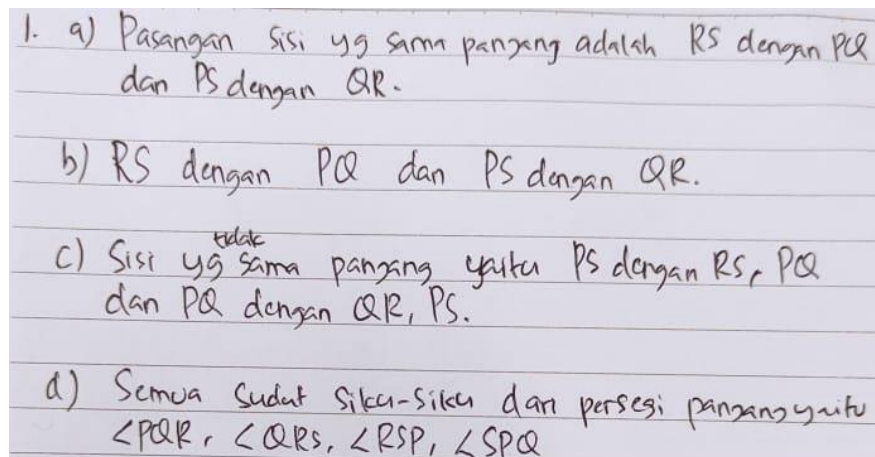 1. a) Pasangan sisi yg sama panjang adalah RS dengan PQ
dan PS dengan QR.
b) RS dengan PQ dan PS dengan QR.
c) Sisi yg tidak sama panjang yaitu PS dengan RS, PQ
dan PQ dengan QR, PS.
d) Semua sudut siku-siku dari persegi panjang yaitu
<PQR, <QRS, <RSP, <SPQ